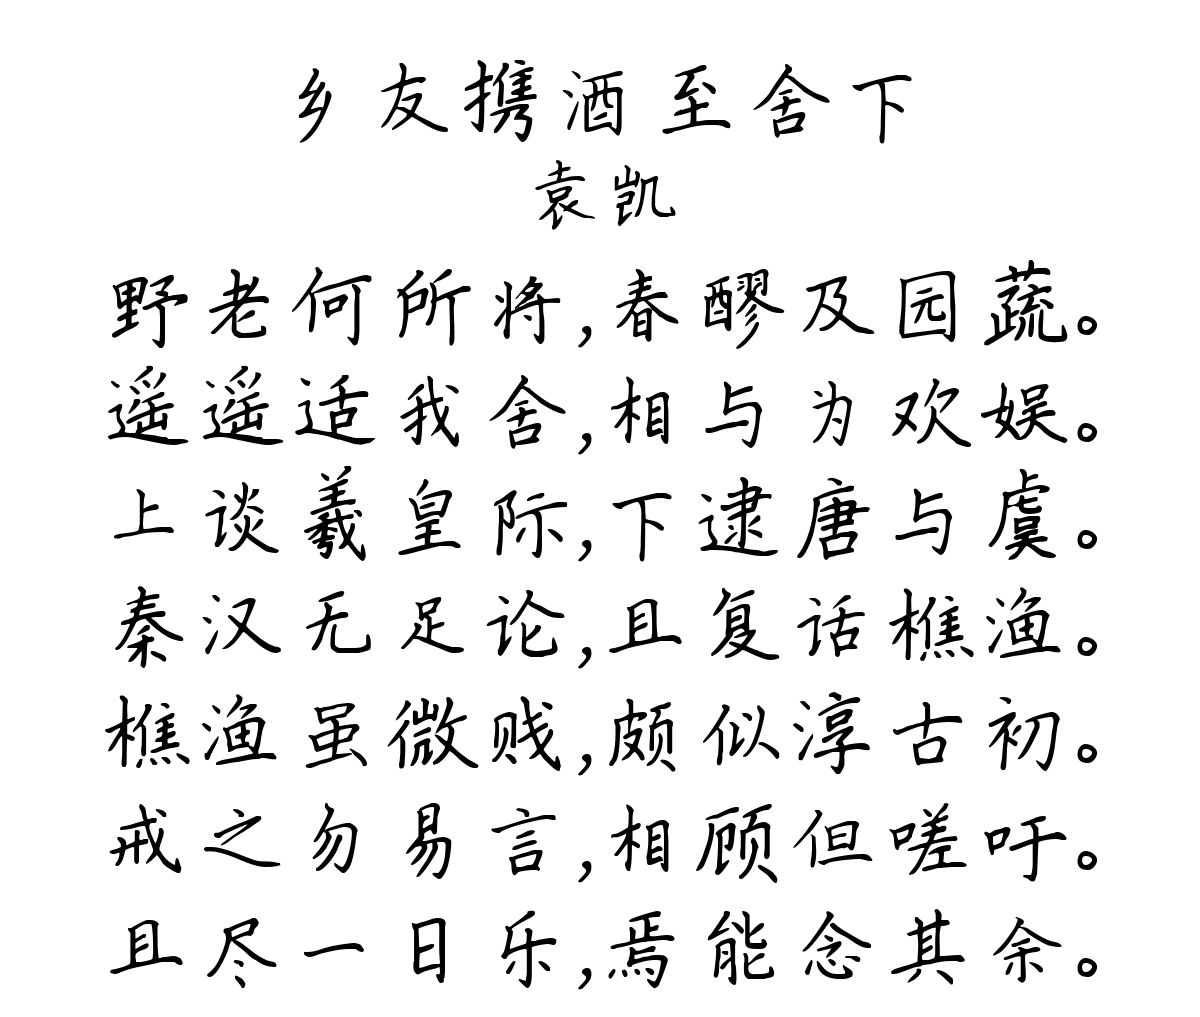 乡友携酒至舍下
袁凯
野老何所将,春醪及园蔬。
遥遥适我舍,相与为欢娱。
上谈羲皇际,下逮唐与虞。
秦汉无足论,且复话樵渔。
樵渔虽微贱,颇似淳古初。
戒之勿易言,相顾但嗟吁。
且尽一日乐,焉能念其余。